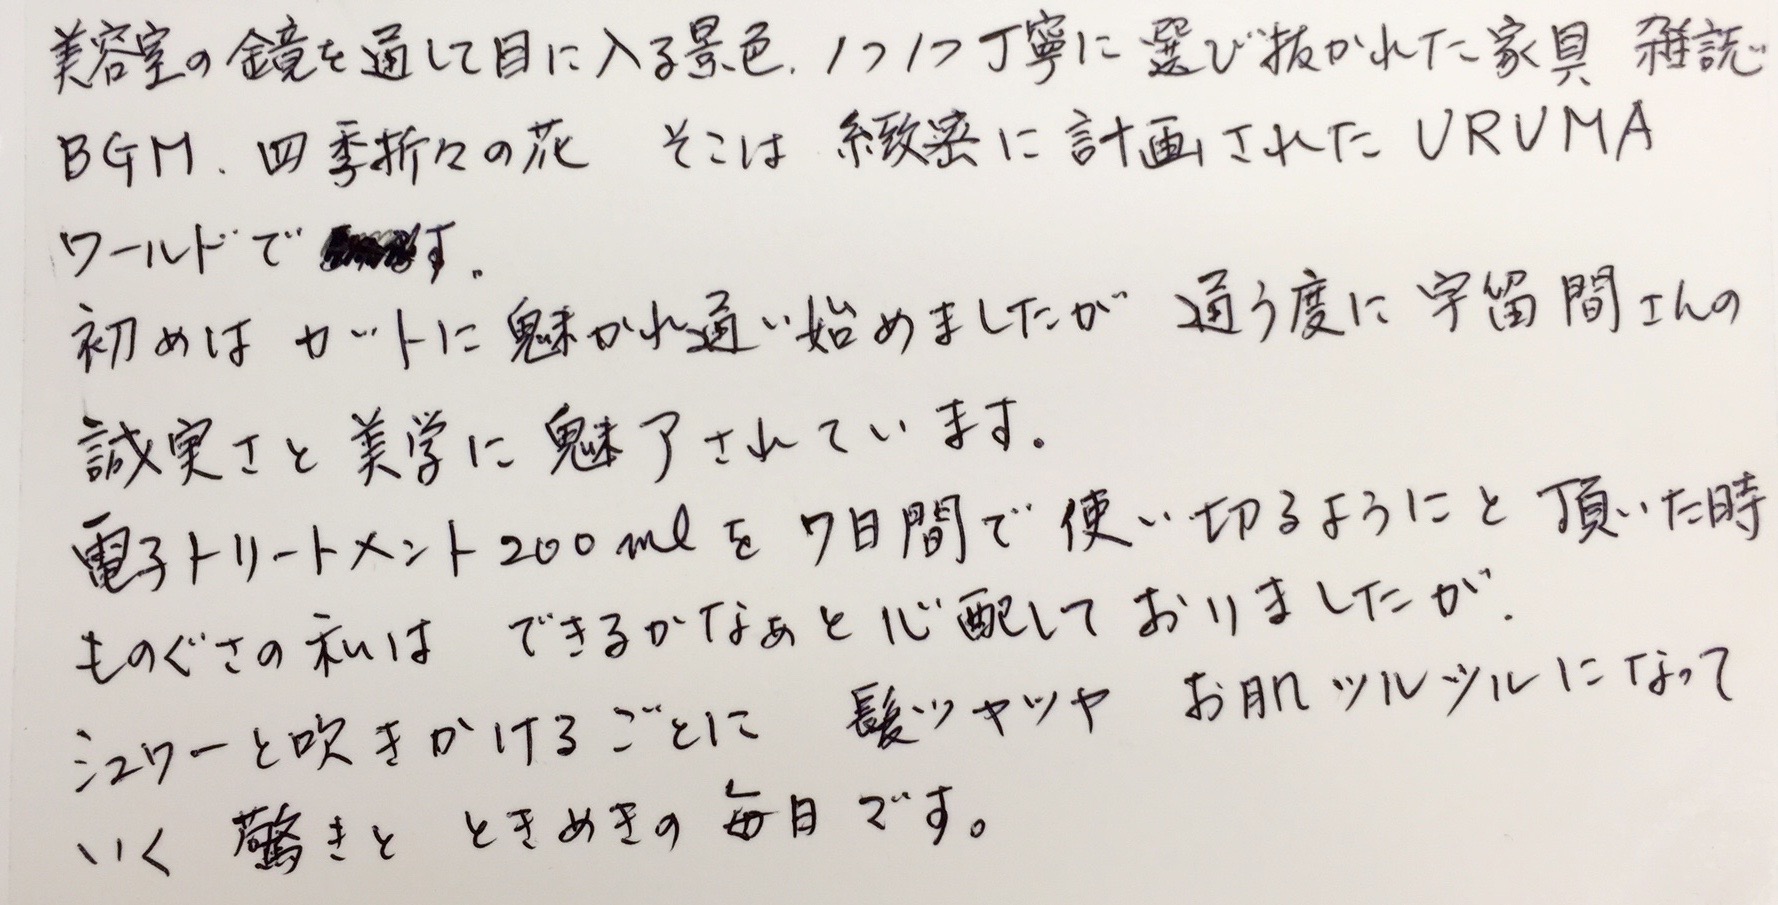 美容室の鏡を通して目に入る景色、1つ1つ丁寧に選び抜かれた家具 雑誌
BGM、四季折々の花 そこは緻密に計画されたURUMA
ワールドです。
初めはカットに魅かれ通い始めましたが 通う度に宇留間さんの
誠実さと美学に魅了されています。
電子トリートメント200mlを7日間で使い切るようにと頂いた時
ものぐさの私は できるかなぁと心配しておりましたが、
シュワーと吹きかけるごとに 髪ツヤツヤ お肌ツルツルになって
いく 驚きと ときめきの毎日です。